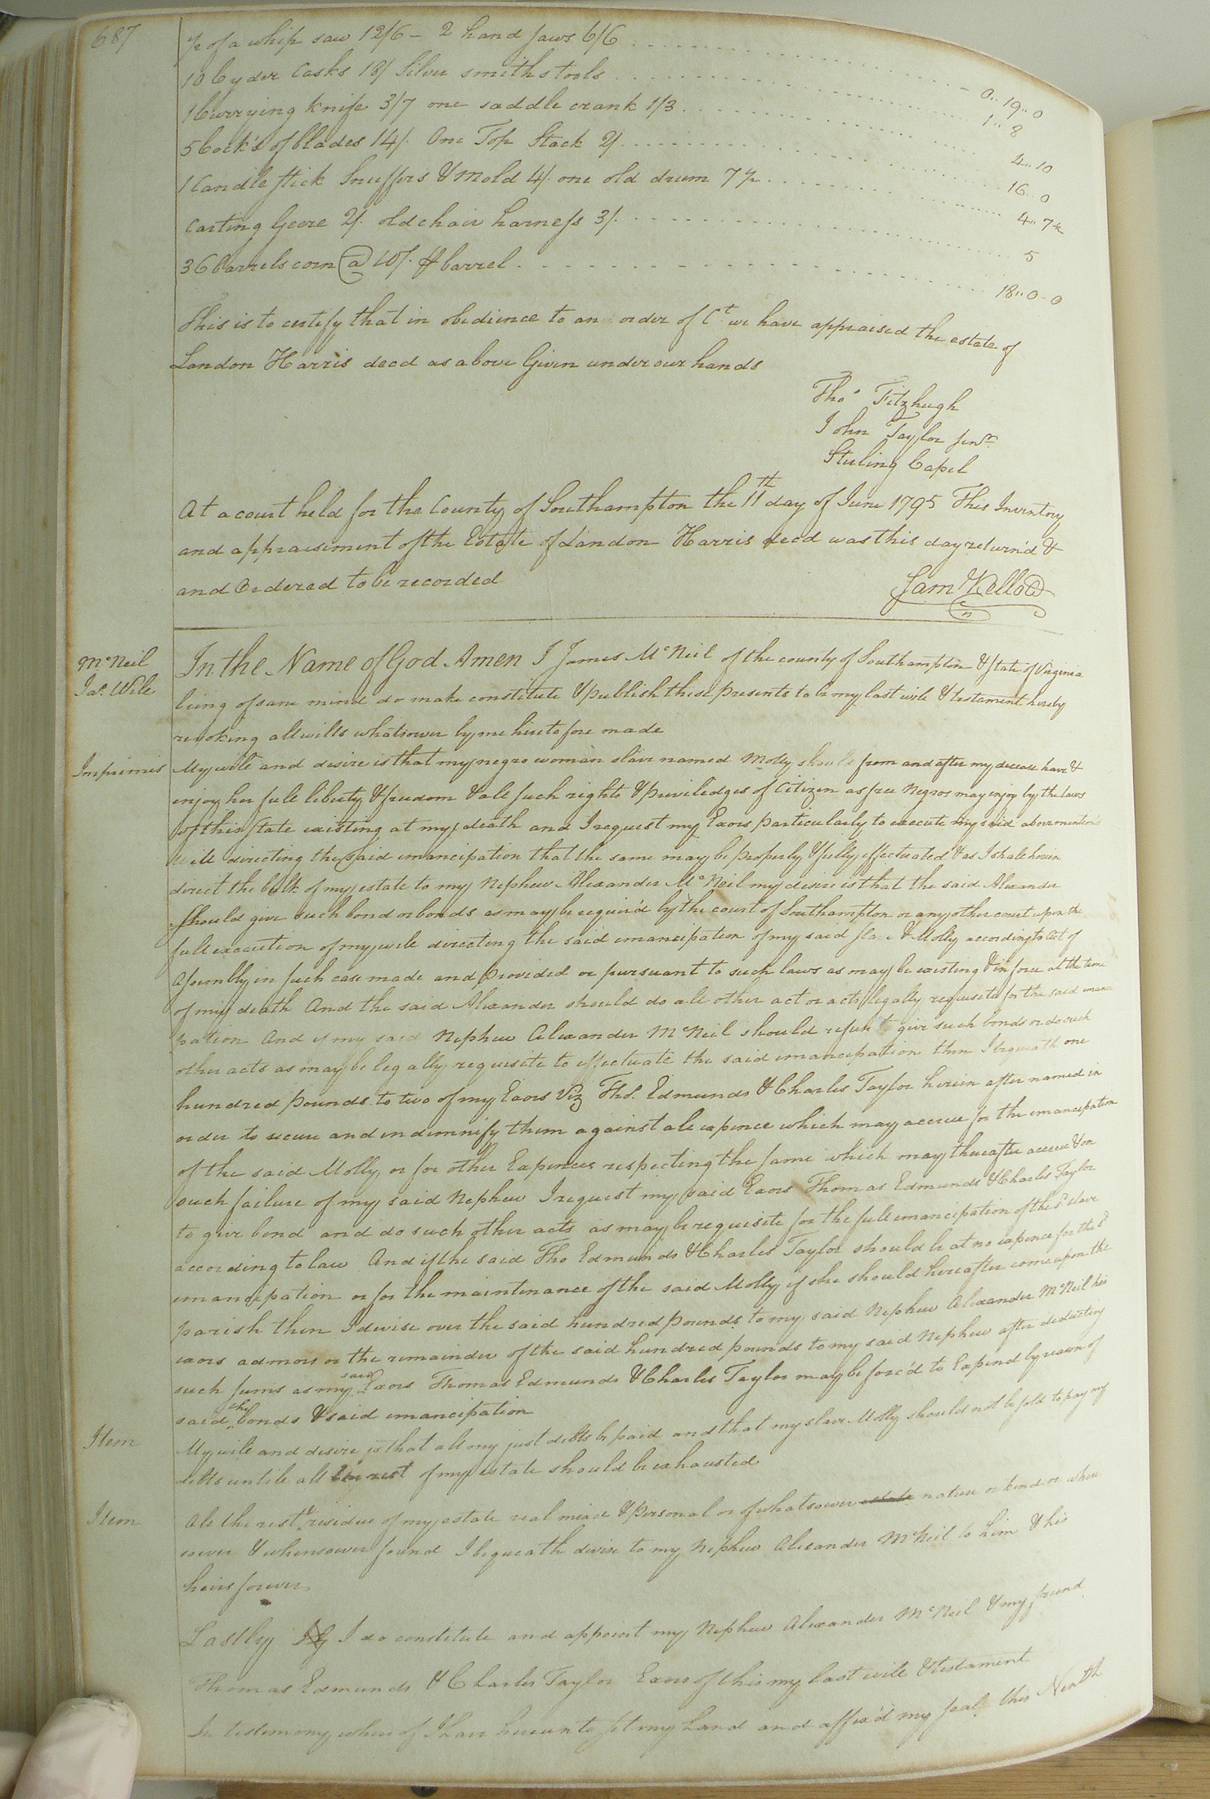 687
½ of a whip saw 12/6 - 2 hand saws 6/6 0..19..0
10 Cyder Casks 18/ Silver smiths tools 1..8
1 Currying knife 3/7 one saddle crank 1/3 4..10
5 Cock's of blades 14/. One Top Stack 2/. 16..0
1 Candle stick Snuffers & Mold 4/. one old drum 7½ 4..7½
Carting Geere 2/. old chair harness 3/. 5
36 Barrels corn @ 10/. ⅌ barrel 18..0..0
This is to certify that in obedience to an order of Ct. we have appraised the estate of
Landon Harris decd as above Given under our hands
Thos. Fitzhugh
John Taylor senr.
Sterling Capel
At a court held for the County of Southampton the 11th day of June 1795 This Inventory
and appraisement of the Estate of Landon Harris decd was this day return'd &
and Ordered to be recorded
Sam Kello C
McNeil
Jas. Will
In the Name of God Amen I James McNeil of the county of Southampton & State of Virginia
being of sane mind do make constitute & publish these presents to be my last will & testament hereby
revoking all wills whatsoever by me heretofore made
Imprimis My will and desire is that my negro woman slave named Molly should from and after my decease have &
enjoy her full liberty & freedom & all such rights & priviledges of Citizen as free Negros may enjoy by the laws
of this State existing at my death and I request my Exors particularly to execute my said abovemention'd
Will directing the said emancipation that the same may be properly & fully effectuated & as I shall herein
direct the bulk of my estate to my Nephew Alexander McNeil my desire is that the said Alexander
should give such bond or bonds as may be requir'd by the court of Southampton or any other court upon the
full execution of my will directing the said emancipation of my said slave Molly according to Act of
Assembly in such case made and provided or pursuant to such laws as may be existing & in force at the time
of my death And the said Alexander should do all other act or acts legally requisite for the said eman-
cipation And if my said Nephew Alexander McNeil should refuse to give such bonds or do such
other acts as may be legally requisite to effectuate the said emancipation then I bequeath one
hundred pounds to two of my Exors Viz Thos. Edmunds & Charles Taylor herein after named in
order to secure and indemnify them against all expence which may accrue for the emancipation
of the said Molly or for other Expences respecting the same which may thereafter accrue & on
such failure of my said Nephew I request my said Exors Thomas Edmunds & Charles Taylor
to give bond and do such other acts as may be requisite for the full emancipation of the sd slave
according to law And if the said Tho Edmunds & Charles Taylor should be at no expence for the sd
emancipation or for the maintenance of the said Molly if she should hereafter come upon the
parish then I devise over the said hundred pounds to my said Nephew Alexander McNeil his
exors admors or the remainder of the said hundred pounds to my said Nephew after deducting
such sums as my said Exors Thomas Edmunds & Charles Taylor may be forc'd to Expend by reason of
said the bonds & said emancipation
Item My will and desire is that all my just debts be paid and that my slave Molly should not be sold to pay my
debts untill all the rest of my estate should be exhausted
Item All the rest & residue of my estate real mixd & personal or of whatsoever estate nature or kind or where
soever & whensoever found I bequeath devise to my Nephew Alexander McNeil to him & his
heirs forever
Lastly I do constitute and appoint my Nephew Alexander McNeil & my friend
Thomas Edmunds & Charles Taylor Exors of this my last will & testament
In testimony whereof I have hereunto set my hand and affixd my seal this Ninth